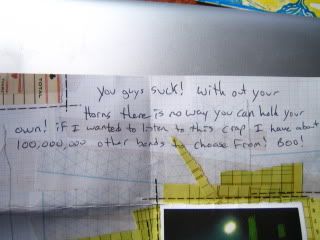 you guys suck! with out your
Horns there is no way you can hold your
own! if I wanted to listen to this crap I have about
100,000,000 other bands to choose from! Boo!